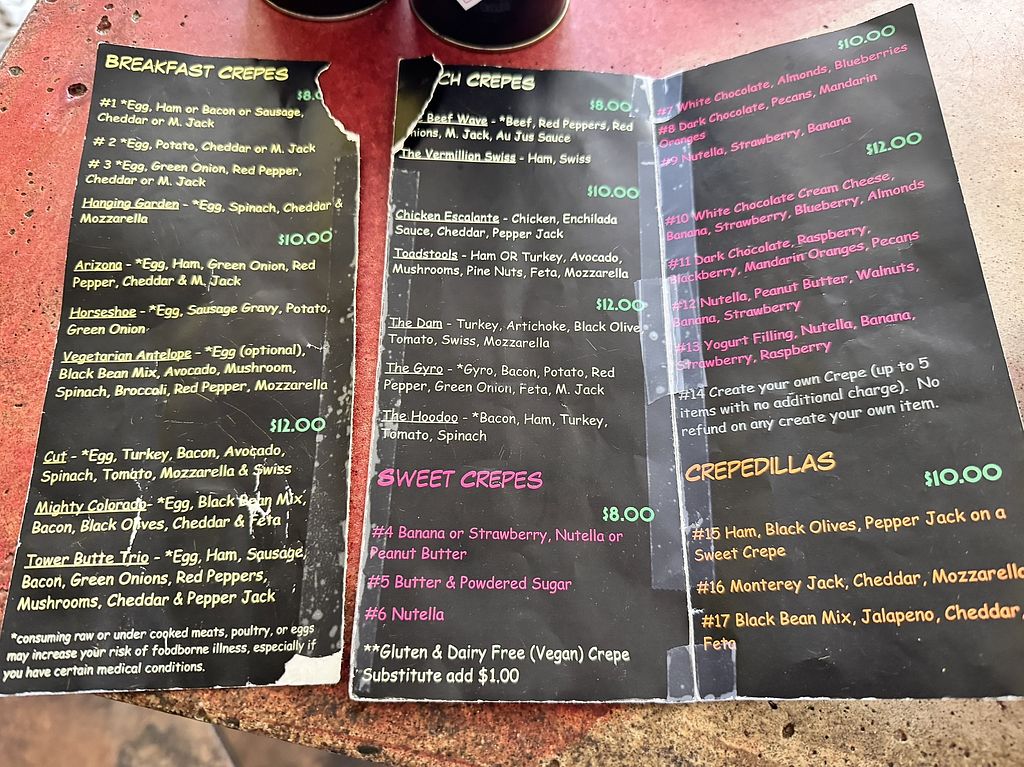 BREAKFAST CREPES
$8.0
#1 *Egg, Ham or Bacon or Sausage,
Cheddar or M. Jack
# 2 *Egg, Potato, Cheddar or M. Jack
# 3 *Egg, Green Onion, Red Pepper,
Cheddar or M. Jack
Hanging Garden - *Egg, Spinach, Cheddar &
Mozzarella
$10.00
Arizona - *Egg, Ham, Green Onion, Red
Pepper, Cheddar & M. Jack
Horseshoe - *Egg, Sausage Gravy, Potato,
Green Onion
Vegetarian Antelope - *Egg (optional),
Black Bean Mix, Avocado, Mushroom,
Spinach, Broccoli, Red Pepper, Mozzarella
$12.00
Cut - *Egg, Turkey, Bacon, Avocado,
Spinach, Tomato, Mozzarella & Swiss
Mighty Colorado- *Egg, Black Bean Mix,
Bacon, Black Olives, Cheddar & Feta
Tower Butte Trio - *Egg, Ham, Sausage,
Bacon, Green Onions, Red Peppers,
Mushrooms, Cheddar & Pepper Jack
*consuming raw or under cooked meats, poultry, or eggs
may increase your risk of foodborne illness, especially if
you have certain medical conditions.
CH CREPES
$8.00
Beef Wave - *Beef, Red Peppers, Red
Onions, M. Jack, Au Jus Sauce
The Vermillion Swiss - Ham, Swiss
$10.00
Chicken Escalante - Chicken, Enchilada
Sauce, Cheddar, Pepper Jack
Toadstools - Ham OR Turkey, Avocado,
Mushrooms, Pine Nuts, Feta, Mozzarella
$12.00
The Dam - Turkey, Artichoke, Black Olive,
Tomato, Swiss, Mozzarella
The Gyro - *Gyro, Bacon, Potato, Red
Pepper, Green Onion, Feta, M. Jack
The Hoodoo - *Bacon, Ham, Turkey,
Tomato, Spinach
SWEET CREPES
$8.00
#4 Banana or Strawberry, Nutella or
Peanut Butter
#5 Butter & Powdered Sugar
#6 Nutella
**Gluten & Dairy Free (Vegan) Crepe
Substitute add $1.00
$10.00
#7 White Chocolate, Almonds, Blueberries
#8 Dark Chocolate, Pecans, Mandarin
Oranges
#9 Nutella, Strawberry, Banana
$12.00
#10 White Chocolate Cream Cheese,
Banana, Strawberry, Blueberry, Almonds
#11 Dark Chocolate, Raspberry,
Blackberry, Mandarin Oranges, Pecans
#12 Nutella, Peanut Butter, Walnuts,
Banana, Strawberry
#13 Yogurt Filling, Nutella, Banana,
Strawberry, Raspberry
#14 Create your own Crepe (up to 5
items with no additional charge). No
refund on any create your own item.
CREPEDILLAS
$10.00
#15 Ham, Black Olives, Pepper Jack on a
Sweet Crepe
#16 Monterey Jack, Cheddar, Mozzarella
#17 Black Bean Mix, Jalapeno, Cheddar,
Feta